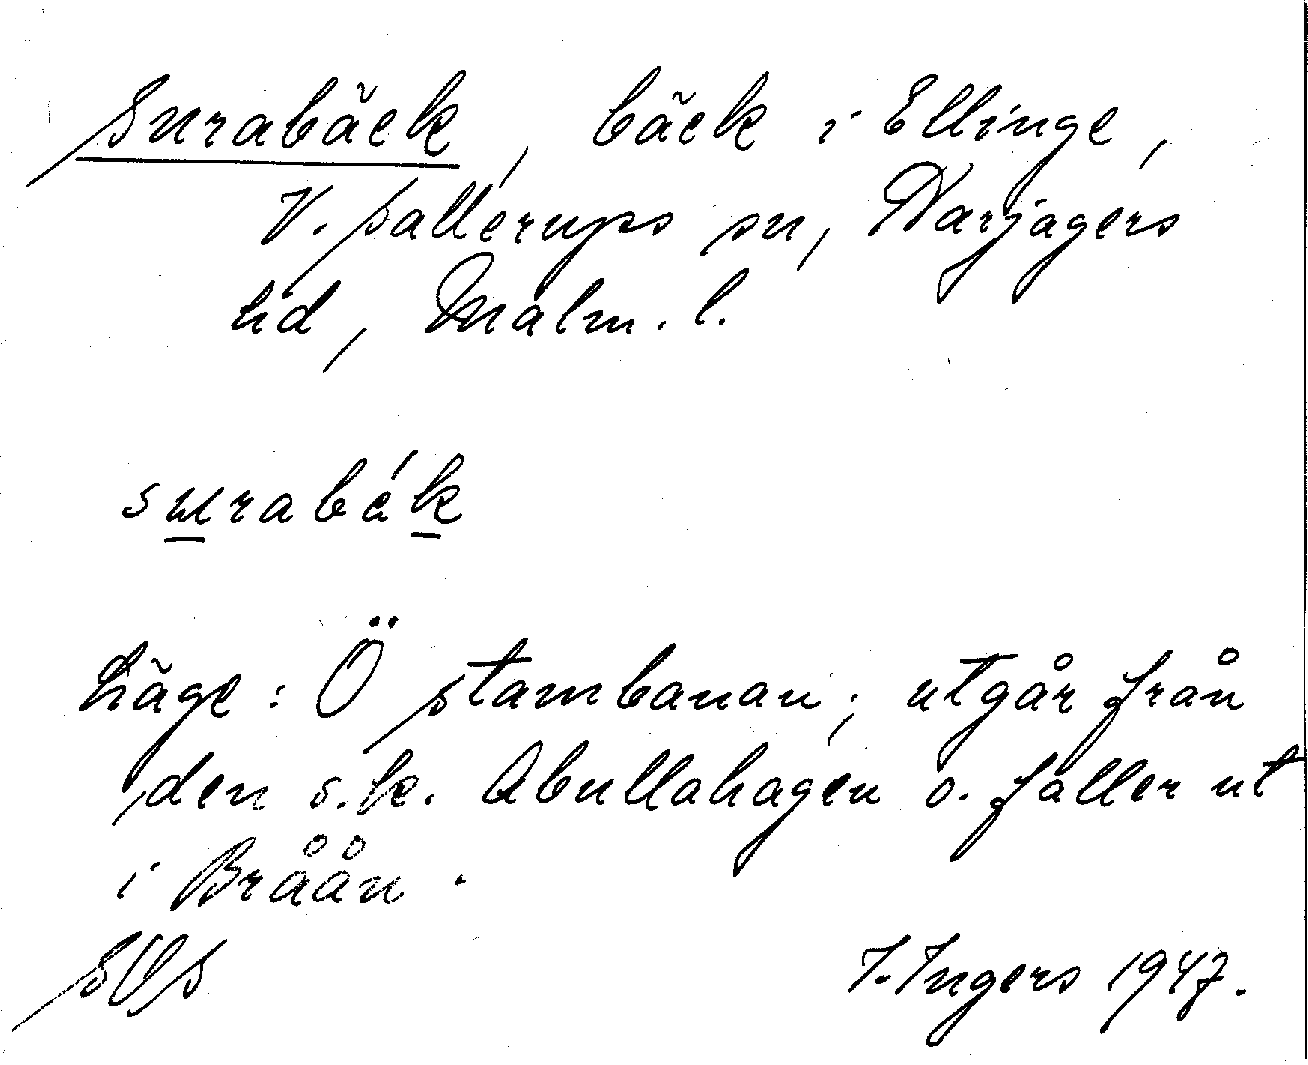 Surabäck, bäck i Ellinge,
V. Sallerups sn, Harjagers
hd, Malm. l.
surabák
Läge: Ö stambanan; utgår från
den s.k. Abullahagen o. faller ut
i Bråån.
SOS
I. Ingers 1947.